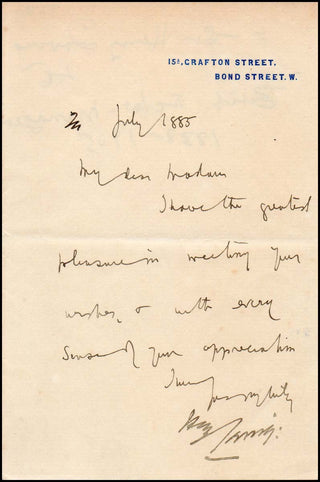 15A, GRAFTON STREET.
BOND STREET. W.
July 1885
My dear Madam
I have the greatest
pleasure in meeting your
wishes, & with every
sense of your appreciation
I am